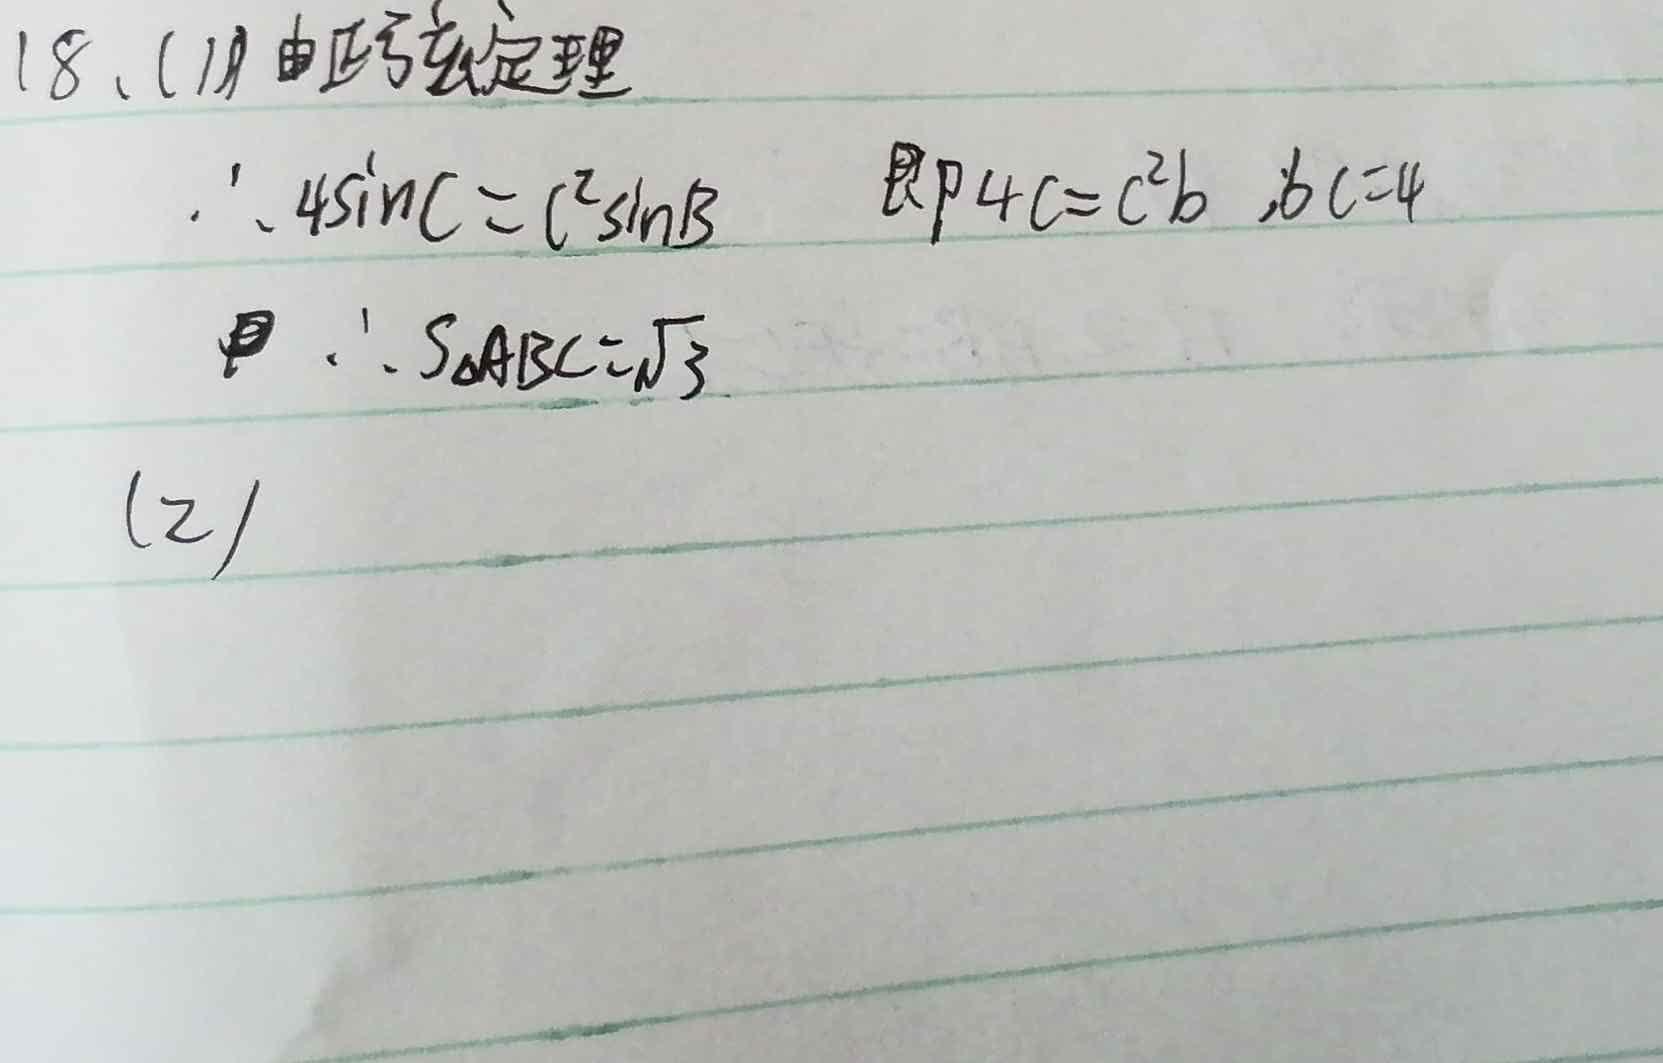 18、(1) 由正弦定理
∴ 4sinC = c²sinB 即 4c = c²b ∴bc=4
∴ S△ABC = √3
(2)